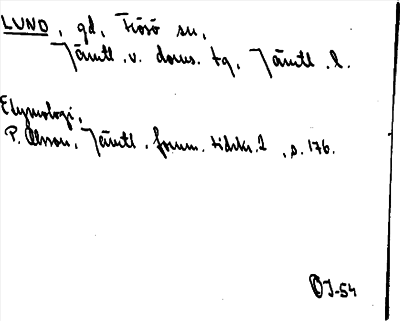 LUND, gd, Frösö sn,
Jämtl. v. doms. tg, Jämtl. l.
Etymologi,
P. Olsson, Jämtl. fornm. tidskr. 2, s. 176.
OJ-54